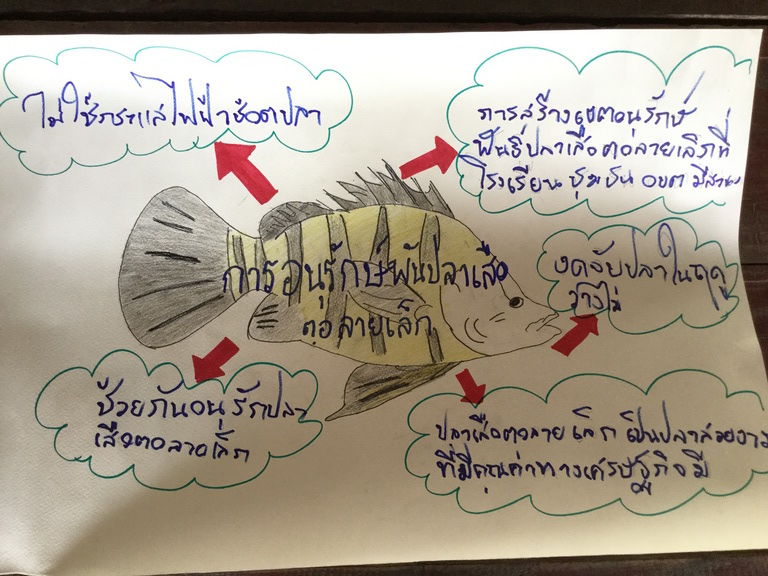 การอนุรักษ์พันปลาเสือ
ตอลายเล็ก
ไม่ใช้กระแสไฟฟ้าช๊อตปลา
การสร้างเขตอนุรักษ์
พันธุ์ปลาเสือตอลายเล็กที่
โรงเรียน ชุมชน อบต
งดจับปลาในฤดู
วางไข่
ปลาเสือตอลายเล็ก เป็นปลาสวยงาม
ที่มีคุณค่าทางเศรษฐกิจ มี
ช่วยกันอนุรักปลา
เสือตอลายเล็ก